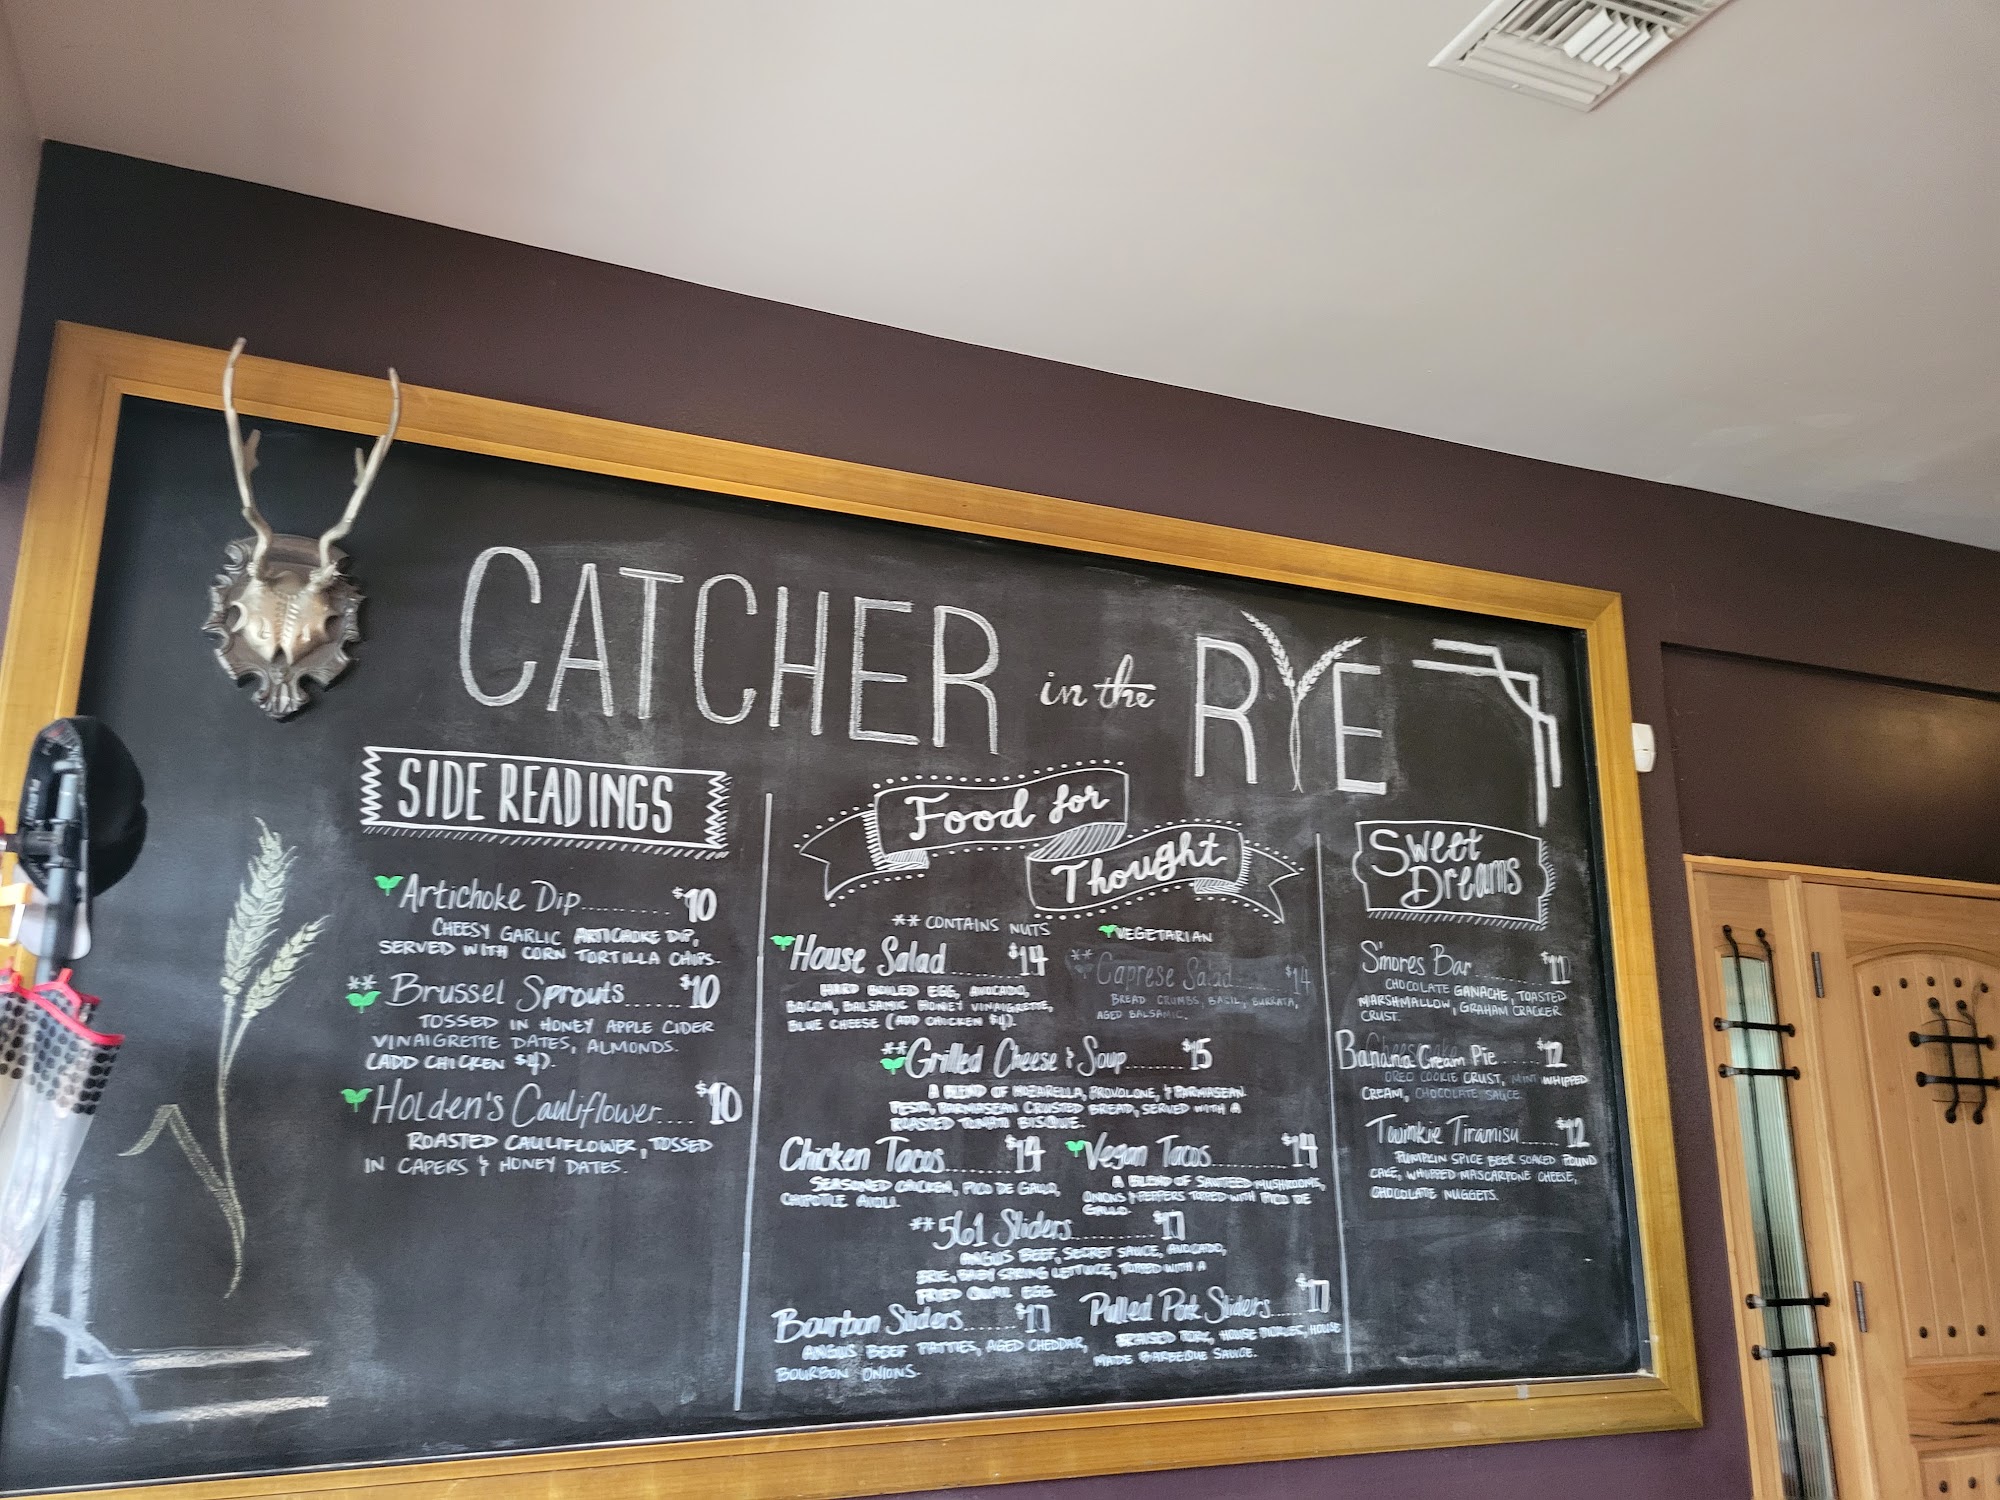 CATCHER in the RYE
SIDE READINGS
Artichoke Dip.......... $10
CHEESY GARLIC ARTICHOKE DIP,
SERVED WITH CORN TORTILLA CHIPS.
** Brussel Sprouts...... $10
TOSSED IN HONEY APPLE CIDER
VINAIGRETTE DATES, ALMONDS.
(ADD CHICKEN $4).
Holden's Cauliflower.... $10
ROASTED CAULIFLOWER, TOSSED
IN CAPERS & HONEY DATES.
Food for
Thought
** CONTAINS NUTS
VEGETARIAN
House Salad........ $14
HARD BOILED EGG, AVOCADO,
BACON, BALSAMIC HONEY VINAIGRETTE,
BLUE CHEESE (ADD CHICKEN $4).
** Caprese Salad...... $14
BREAD CRUMBS, BASIL, BURRATA,
AGED BALSAMIC.
** Grilled Cheese & Soup...... $15
A BLEND OF MOZARELLA, PROVOLONE, & PARMASEAN
PESTO, PARMASEAN CRUSTED BREAD, SERVED WITH A
ROASTED TOMATO BISQUE.
Chicken Tacos......... $14
SEASONED CHICKEN, PICO DE GALLO,
CHIPOTLE AIOLI.
Vegan Tacos.......... $14
A BLEND OF SAUTEED MUSHROOMS,
ONIONS & PEPPERS TOPPED WITH PICO DE
GALLO.
** 561 Sliders.......... $17
ANGUS BEEF, SECRET SAUCE, AVOCADO,
BRIE, BABY SPRING LETTUCE, TOPPED WITH A
FRIED QUAIL EGG.
Bourbon Sliders...... $17
ANGUS BEEF PATTIES, AGED CHEDDAR,
BOURBON ONIONS.
Pulled Pork Sliders.... $17
BRAISED PORK, HOUSE PICKLES, HOUSE
MADE BARBEQUE SAUCE.
Sweet
Dreams
S'mores Bar........ $11
CHOCOLATE GANACHE, TOASTED
MARSHMALLOW, GRAHAM CRACKER
CRUST.
Banana Cream Pie...... $12
OREO COOKIE CRUST, MINT WHIPPED
CREAM, CHOCOLATE SAUCE.
Twinkie Tiramisu...... $12
PUMPKIN SPICE BEER SOAKED POUND
CAKE, WHIPPED MASCARPONE CHEESE,
CHOCOLATE NUGGETS.